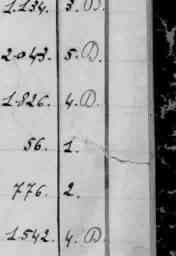 1.134. 3. D.
2.043. 5. D.
1.826. 4. D.
56. 1.
776. 2.
1.542. 4. D.